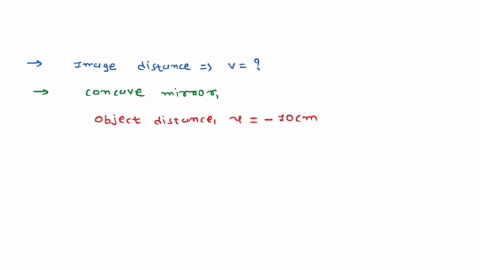 → Image distance => v = ?
→ concave mirror,
object distance, u = - 10cm